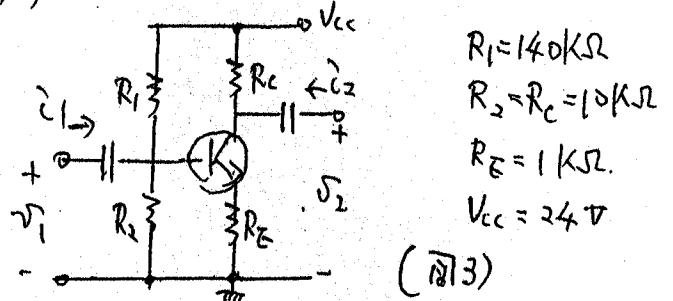 Vcc
R1
Rc
i1→
←i2
+
+
v1
R2
RE
v2
-
-
R1=140KΩ
R2=Rc=10KΩ
RE=1KΩ.
Vcc=24V
(图3)